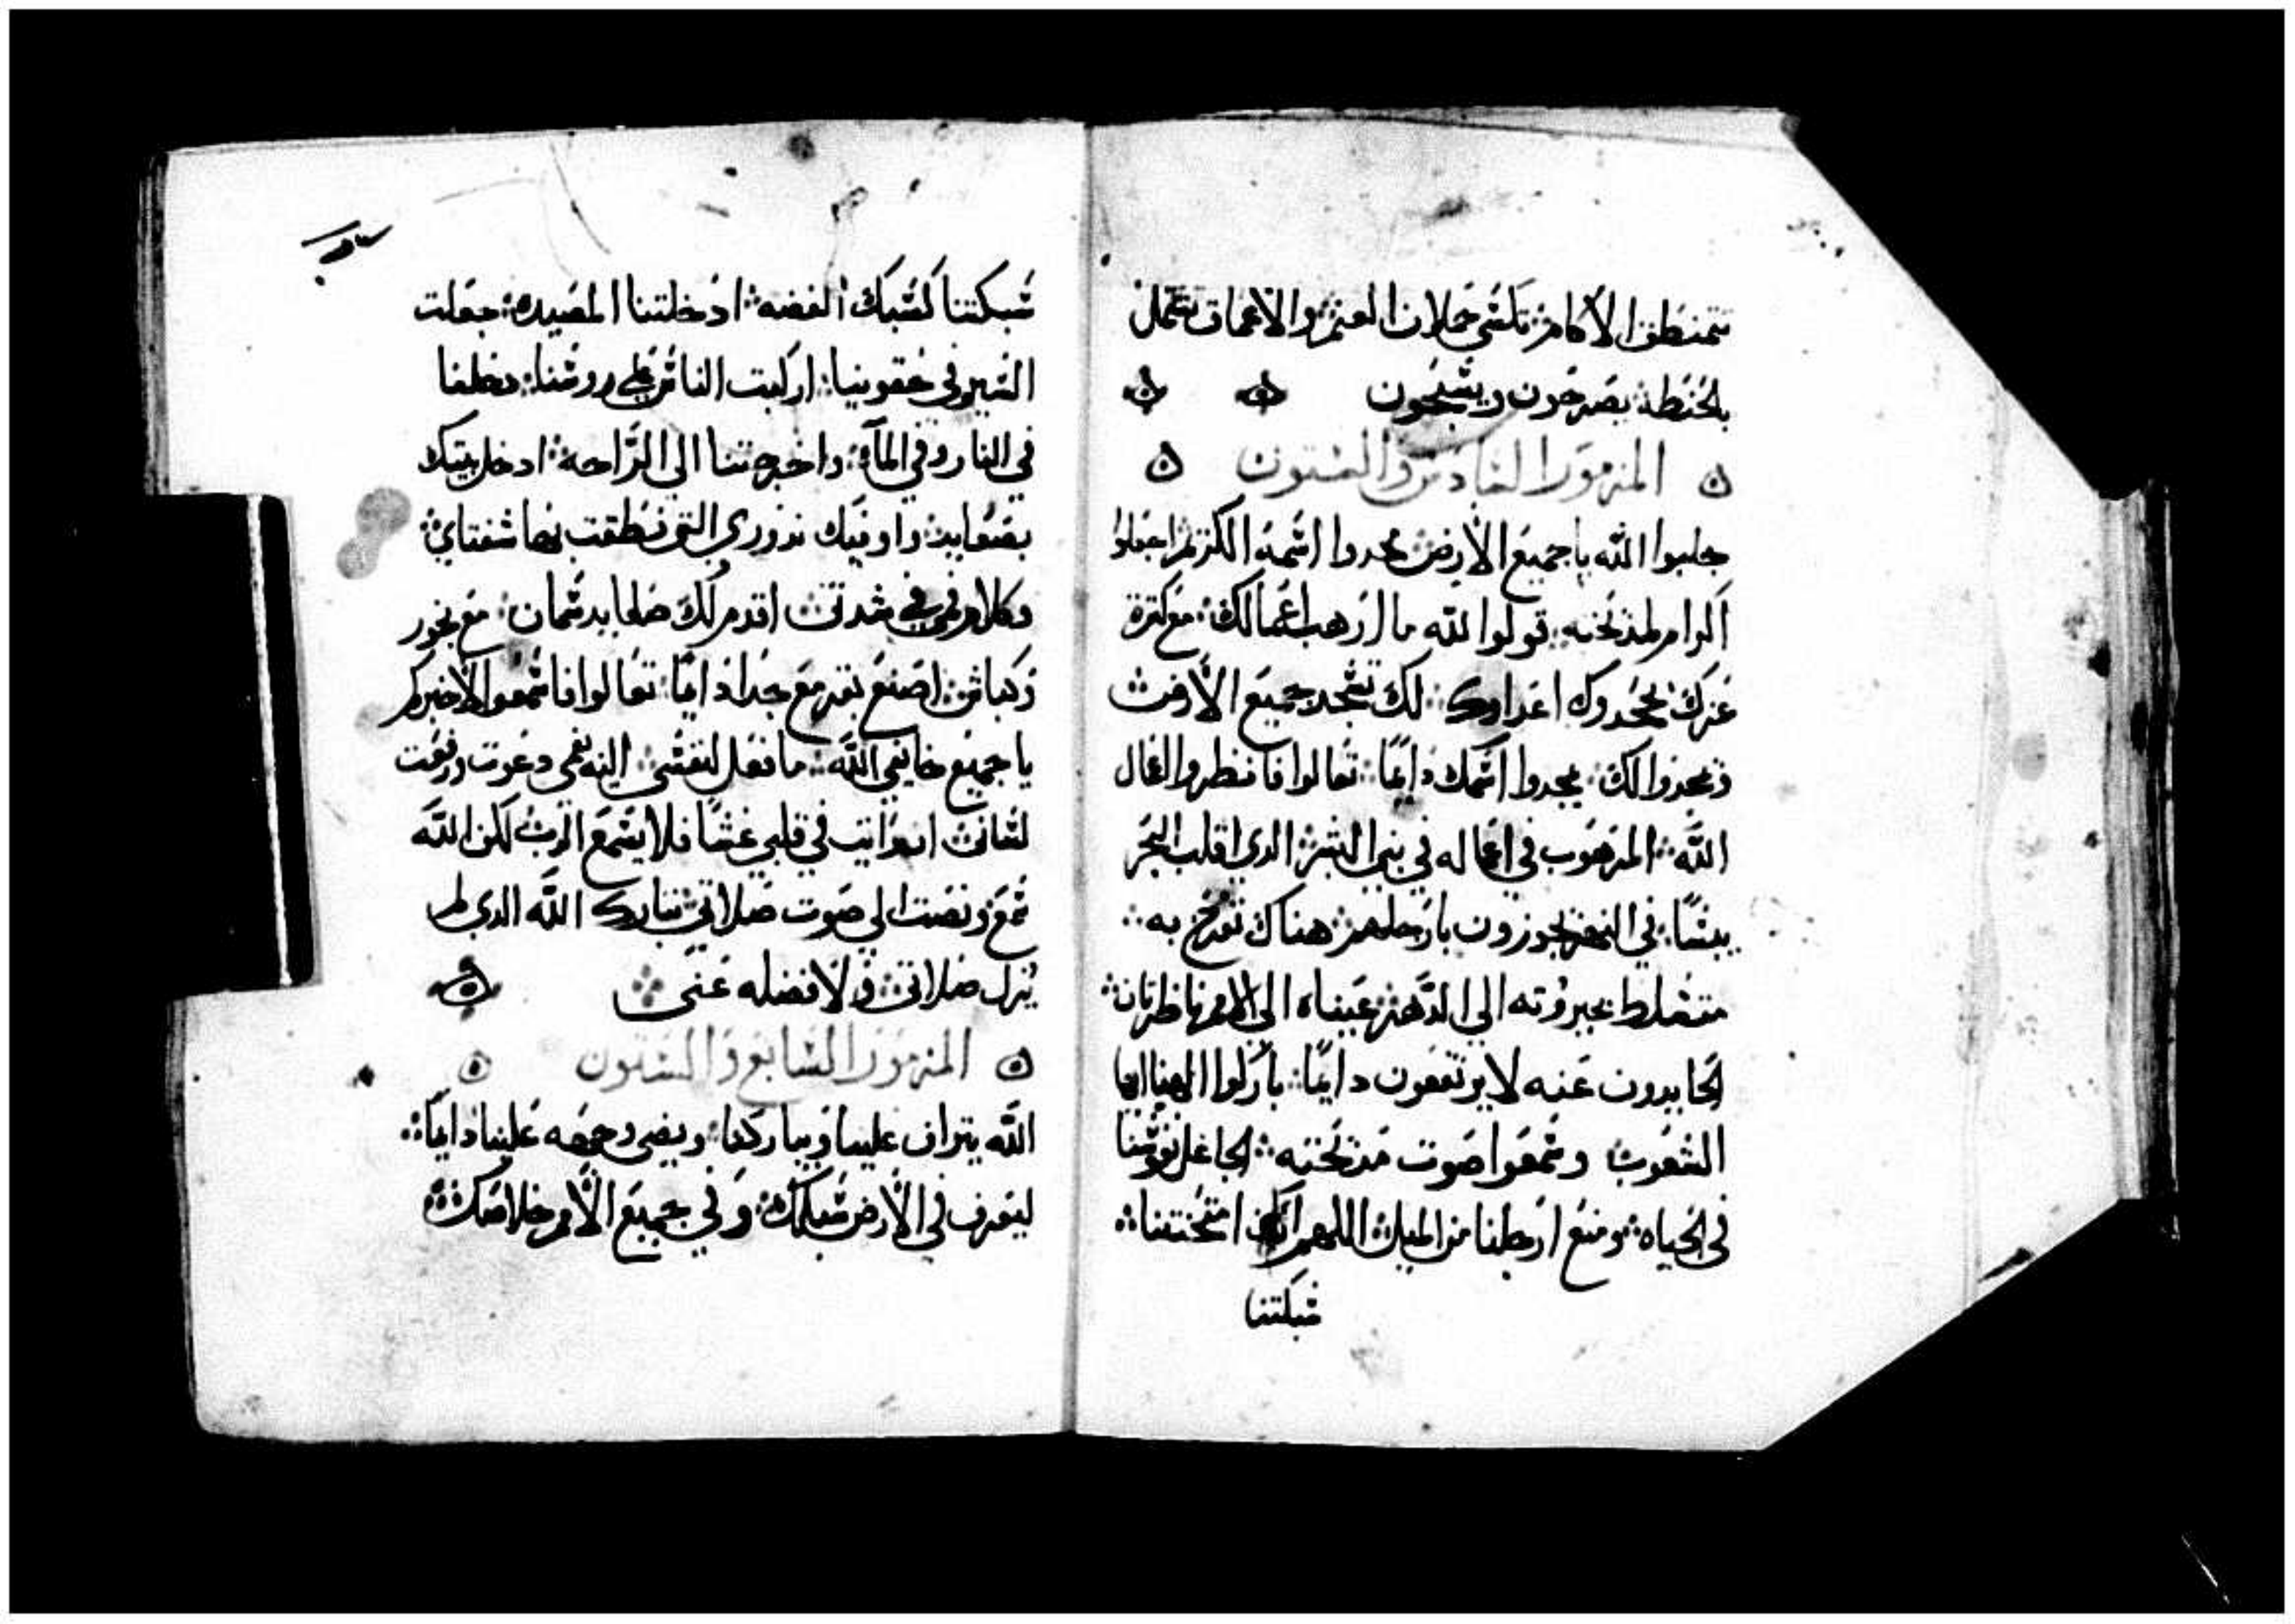 تتمنطق الاكام تكتسي حملان الغنم والاعماق تمتلئ
بالحنطه يصرخون ويسبحون
المزمور السادس والستون
هللوا الله يا جميع الارض مجدوا اسمه الكريم اجعلوا
اكرام لمدحته قولوا لله ما ارهب اعمالك مع كثرة
عزك يجحدوك اعداوك لك تسجد جميع الارض
ويمجدوا لك يمجدوا اسمك دايمًا تعالوا فانظروا افعال
الله المرهوب في اعماله في بني البشر الدي اقلب البحر
يبسًا في النهر يجوزون بارجلهم هناك نفرح به
متسلط بجبروته الى الدهر عيناه الى الامم ناظرتان
الحايدون عنه لا يرتفعون دايمًا باركوا الهنا ايها
الشعوب وسمعوا صوت مدحته الجاعل نفوسنا
في الحياه ومنع ارجلنا من الميل اللهم انك امتحنتنا
سبكتنا
سبكتنا كسبك الفضه ادخلتنا المصيده جعلت
النير في حقوينا اركبت الناس على رووسنا دخلنا
في النار وفي المآء واخرجتنا الى الراحه ادخل بيتك
بصعايد واوفيك ندوري التي نطقت بها شفتاي
وكلام فمي في شدتي اقدم لك ضحايا سمان مع بخور
وكباش اصنع بقر مع جدا دايمًا تعالوا فاسمعوا لاخبركم
يا جميع خايفي الله ما فعل لنفسي اليه بفمي دعوت ورفعت
لساني ان رايت في قلبي غشًا فلا يسمع الرب لكن الله
سمع ونصت الى صوت صلاتي تبارك الله الدي لم
يزل صلاتي ولا فضله عني
المزمور السابع والستون
الله يتراف علينا ويباركنا ويضي وجهه علينا دايمًا
ليعرف في الارض سبلك وفي جميع الامم خلاصك